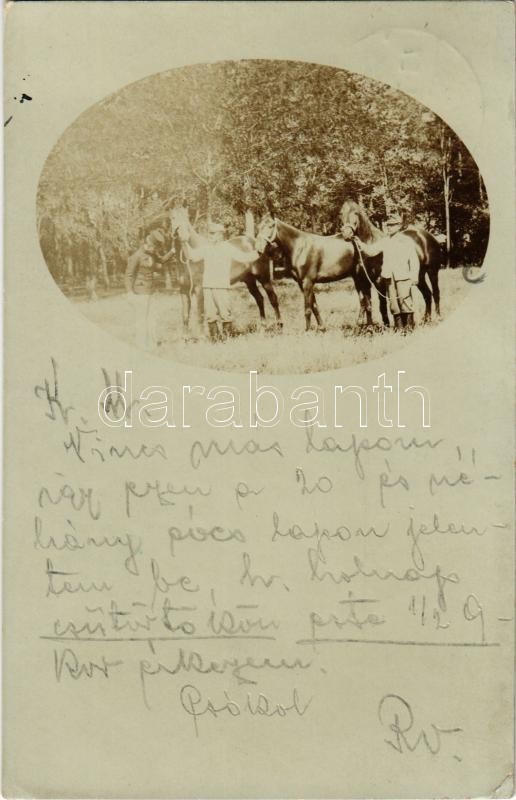 K. M.
darabanth
Nincs más lapom,
így ezen a 20 és né-
hány pócs lapon jelen-
tem be, h. holnap
csütörtökön este 1/2 9-
kor érkezem.
Csókol
Rv.